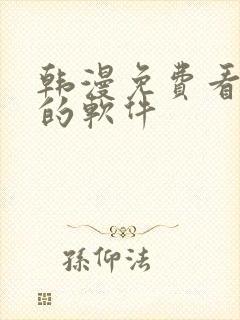 韩漫免費看
的軟件
孫仰法